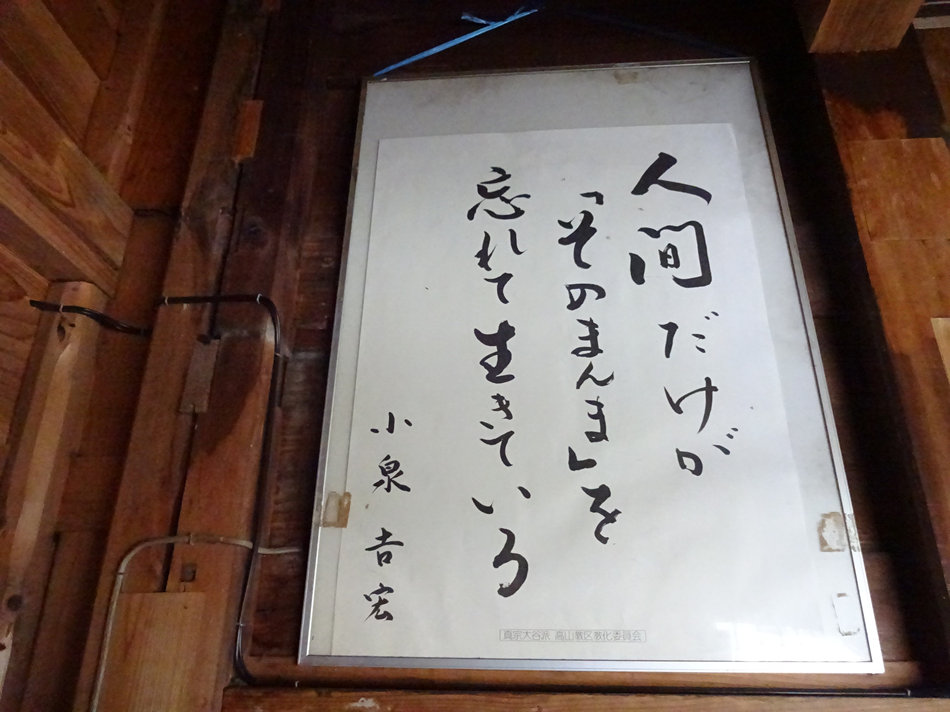 人間だけが
「そのまんま」を
忘れて生きている
小泉吉宏
真宗大谷派 高山教区教化委員会